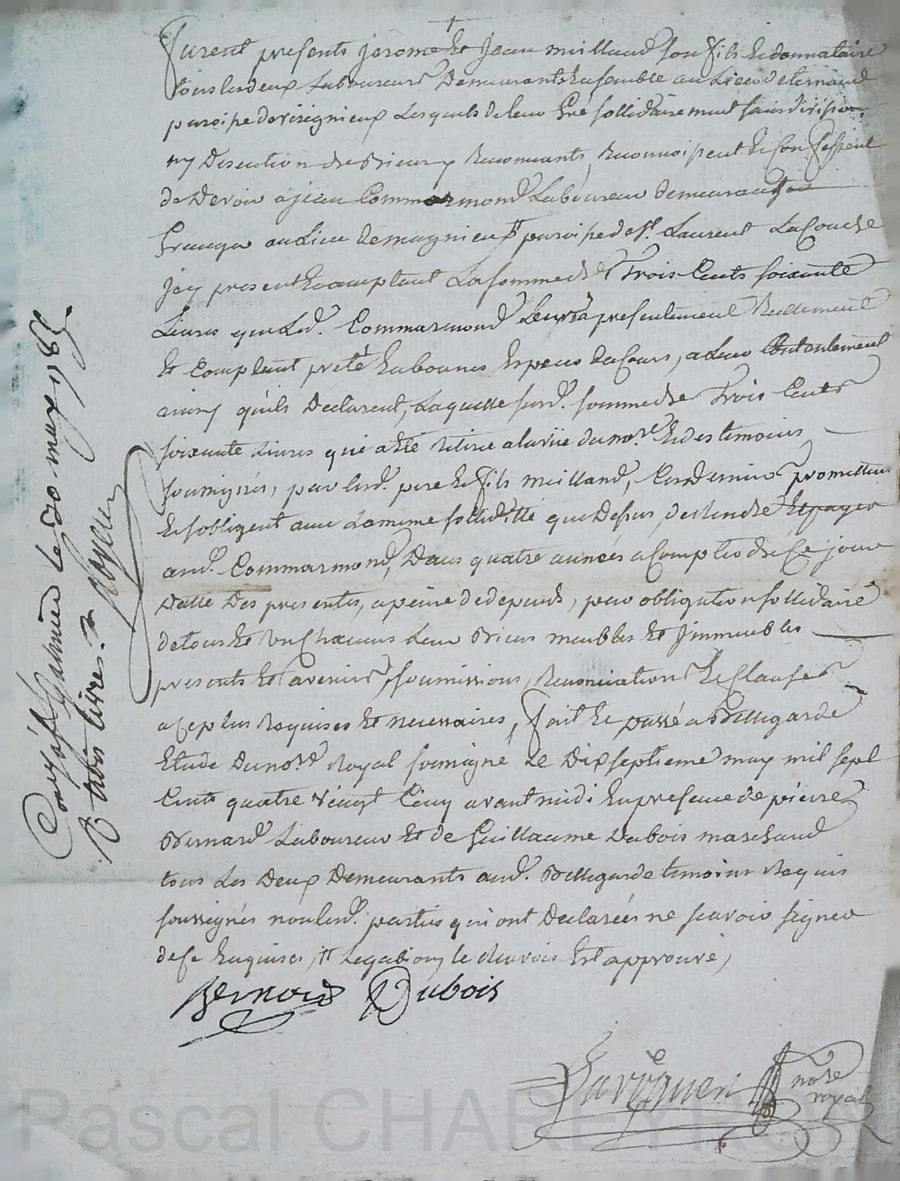 furent presents jerome et jean meilland son fils et donnataire
tous les deux Laboureurs Demeurants Ensemble au Lieu
paroisse de virignieux Lesquels de Leur Gré sollidairement sans division
ny Discution de Biens y Renonceants, Reconnoissent et Confessent
de Devoir a jean Commarmond Laboureur demeurant
Granger au Lieu de magnieu paroisse de st. Laurent La Conche
jcy present Ecceptant La somme de Trois Cents soixante
Livres que Led. Commarmond Leur a presentement Reellement
Et Comptant preté En bonnes Especes de Cours, a Leur Contentement
ainsy qu'ils Declarent, Laquelle surd. somme de Trois Cents
soixante Livres qui a été retiré a la vüe du nore. Et des temoins
soussignés, par lesd. pere et fils meilland, Ces Derniers promettent
Et s'obligent avec La meme solliditté que Dessus, de Rendre Et payer
aud. Commarmond, Dans quatre années a Compter de Ce jour
Datte Des presentes, a peine de depends, par obligation sollidaire
de tous et un Chacuns Leurs Biens meubles et jmmeubles
presents et avenirs, soumissions, Renonciations et Clauses
a ce plus Requises et necessaires, fait et passé a Bellegarde
Etude du nore. Royal soussigné Le Dix septieme may mil sept
Cents quatre vingt Cinq avant midi En presence de pierre
Bernard Laboureur et de Guillaume Dubois marchand
tous Les Deux Demeurants aud. Bellegarde temoins Requis
soussignés non lesd. parties qui ont Declarées ne scavoir signer
de ce Enquises, le est approuvé,
Bernard Dubois
nore
royal
Conollé a Galmier Le 20 may 1785
Pascal CHARLYRON